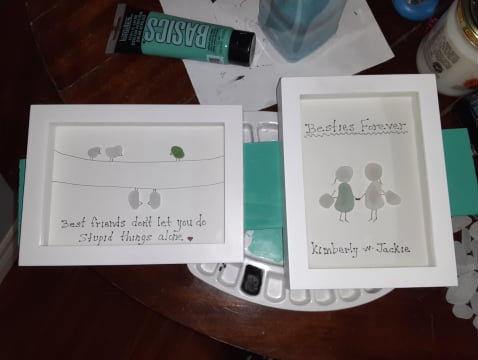 BASICS
Best friends don't let you do
Stupid things alone.
Besties Forever
Kimberly -n- Jackie